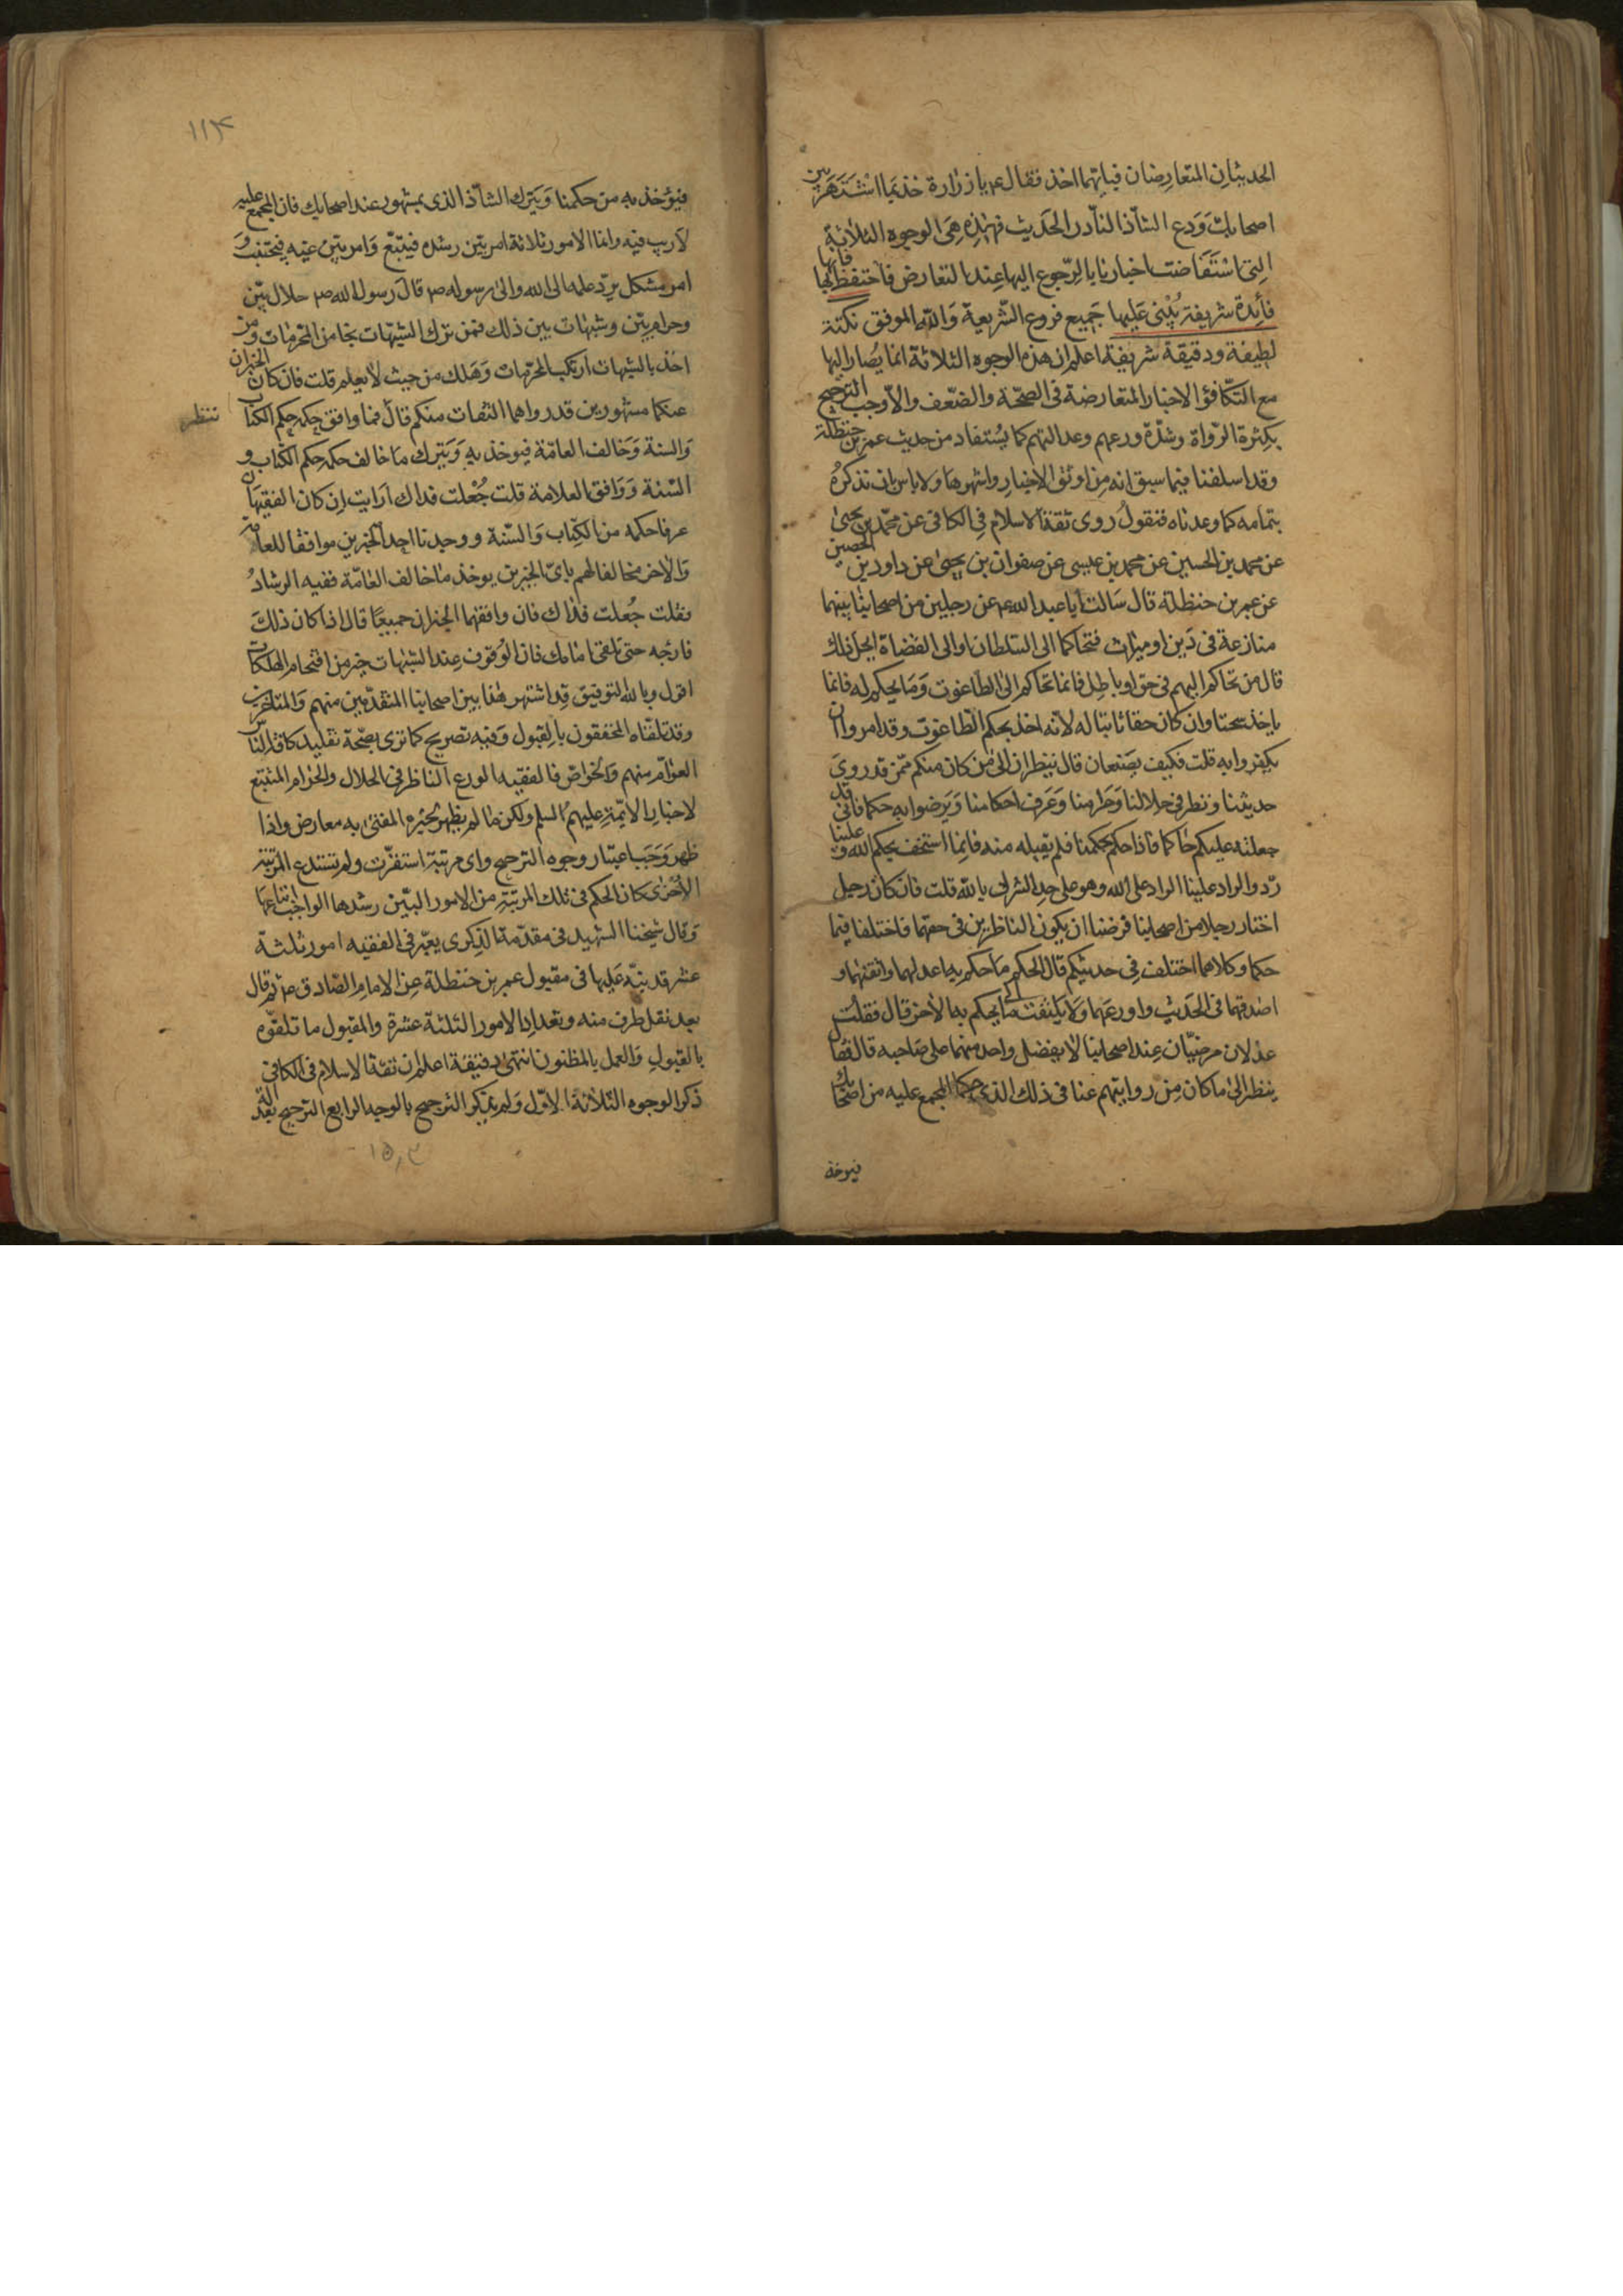 الحديثان المتعارضان فبايهما اخذ فقال ع يا زرارة خذ بما اشتهر بين
اصحابك وَدع الشاذ النادر الحديث فهذه هى الوجوه الثلاثة
التى استفاضت اخبارنا بالرّجوع اليها عند التعارض فاحتفظ بها فانها
فائدة شريفة يُبْنى عَليها جَميع فروع الشّريعة وَاللّه الموفق نكتة
لطيفة ودقيقة شريفة اعلم ان هذه الوجوه الثلاثة انما يُصار اليها
مع التّكافؤ الاخبار المتعارضة فى الصحّة والضّعف والاّ وجب الترجيح
بكثرة الرّواة وشدّة ورعهم وعدالتهم كما يُستفاد من حديث عمر بن حنظلة
وقد اسلفنا فيما سبق انه مِن اوثق الاخبارِ واشهرها ولا باس بان نذكرُه
بتمامه كما وعدناه فنقولُ روى ثقة الاسلام فِى الكافى عن محمّد بن يحيىٰ
عن محمد بن الحسين عن محمد بن عيسى عن صفوان بن يحيىٰ عن داود بن الحصين
عن عمر بن حنظلة قال سَالت ابا عبد الله ع عن رجلين من اصحابنا بينهما
منازعة فى دَين او ميراث فتحاكما الى السّلطان او الى القضاة ايحل ذلك
قال من تحاكم اليهم فى حق او باطِل فانما تحاكم الىٰ الطّاغوت وَمَا يحكم له فانما
ياخذ سحتا وان كان حقا ثابتا له لانّه اخذ بحكم الطّاغوت وقد امروا ان
يكفروا به قلت فكيف يصَنعان قال ينظران الىٰ مَن كان منكم ممّن قد روىَ
حديثنا ونظر فى حلالنا وَحَرامنا وَعَرف احكامنا وَيرضوا به حكما فانى قد
جعلته عليكم حاكما فاذا حكم بحكمنا فلم يقبله منه فانما استخف بحكم الله وَعلينا
ردّ والراد علينا الراد على الله وهو على حد الشرك بالله قلت فان كان رجل
اختار رجلا من اصحابنا فرضيا ان يكون الناظرين فى حقهما فاختلفا فيما
حكما وكلاهما اختلف فِى حديثكم قال الحكم مَا حكم به اعدلهما وافقههما و
اصدقهما فى الحَديثِ واورعَهما وَلا يلتفت الى ما يحكم به الاٰخر قال فقلت
عدلان مرضيّان عِند اصحابنا لا يفضل واحد منهما على صَاحبه قال فقال
ينظر الىٰ ما كان مِن روايتهم عنا فى ذلك الذى حكما المجمع عليه من اصحابك
فيوخذ
١١٣
فيؤخذ به من حكمنا وَيَترك الشاذّ الذى بمشهور عند اصحابك فان المجمع عليه
لاريب فيه وانما الامور ثلاثة امر بيّن رشده فيتّبع وَامر بيّن غيّه فيجتنب وَ
امر مشكل يردّ علمه الى الله والىٰ رسوله ص قالَ رسول الله ص حلال بيّن
وحرام بيّن وشبهات بين ذلك فمن ترك الشبهات نجا من المحرمات ومن
اخذ بالشبهات ارتكب المحرّمات وَهَلك من حيث لا يعلم قلت فان كان الخبران
عنكما مشهورين قد رواهما الثقات منكم قالَ فما وافق حكمه حكم الكتاب
ننظر
وَالسنة وَخالف العامّة فيوخذ به وَيَترك مَا خالف حكمه حكم الكتاب و
السّنة وَوَافق العلامة قلت جُعْلت فداك اَرايت اِن كان الفقيهان
عرفا حكمه من الكِتاب وَالسّنة ووجدنا احد الخبرين موافقا للعامّة
وَالاٰخر مخالفا لهم باىّ الخبرين يوخذ ما خالف العامّة ففيه الرشادُ
فقلت جُعلت فداك فان وافقهما الخبران جميعًا قال اذا كان ذلكَ
فارجه حتى تلقى امامك فان الوُقوف عِند الشبهات خير من اقتحام الهلكات
اقول وبالله التوفيق قد اشتهر هذا بين اصحابنا المتقدّمين منهم وَالمتاخرين
وقد تلقّاه المحققون بالقبول وَفيه تصريح كما ترى بصّحة تقليد كافة الناس
العوٰامّ منهم وَالخواصّ فالفقيه الورع الناظر فى الحلال والحرام المتتبّع
لاخبار الائِمّة عليهم السلم ولكن ما لم يظهر بخبره المفتىٰ به معارض واذا
ظهر وَجَب اعتبار وجوه الترجيح واى مرتبة استقرّت ولم تستدع المرتبة
الاُخرٰى كان الحكم فى تلك المرتبَة من الامور البيّن رشدها الواجب اتباعها
وَقال شيخنا الشهيد فى مقدّمة الذِكرى يعتبر فى الفقيه امور ثلثة
عشر قد نبّه عَليها فى مقبول عمر بن حنظلة عن الامام الصّادق ع ثم قال
بعد نقل طرف منه وتعداد الامور الثلثة عشرة والمقبول ما تلقّوه
بالقبولِ وَالعمل بالمظنون انتهىٰ دقيقة اعلم ان ثقة الاسلام فى الكافى
ذكر الوجوه الثلاثة الاوّل وَلم يذكر الترجيح بالوجه الرابع الترجيح بعدالة
١٥٫٣